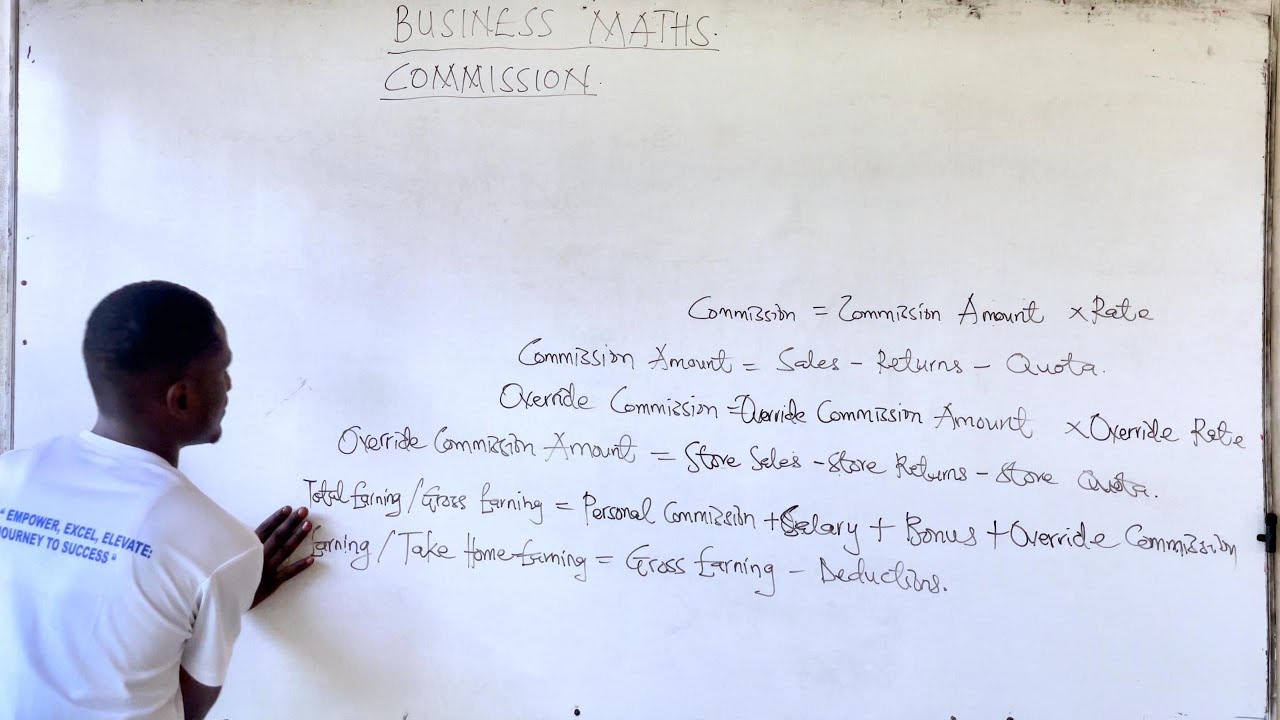 BUSINESS MATHS.
COMMISSION.
Commission = Commission Amount × Rate
Commission Amount = Sales - Returns - Quota.
Override Commission = Override Commission Amount × Override Rate
Override Commission Amount = Store Sales - Store Returns - Store Quota.
Total Earning / Gross Earning = Personal Commission + Salary + Bonus + Override Commission
Earning / Take Home Earning = Gross Earning - Deductions.
" EMPOWER, EXCEL, ELEVATE:
JOURNEY TO SUCCESS "